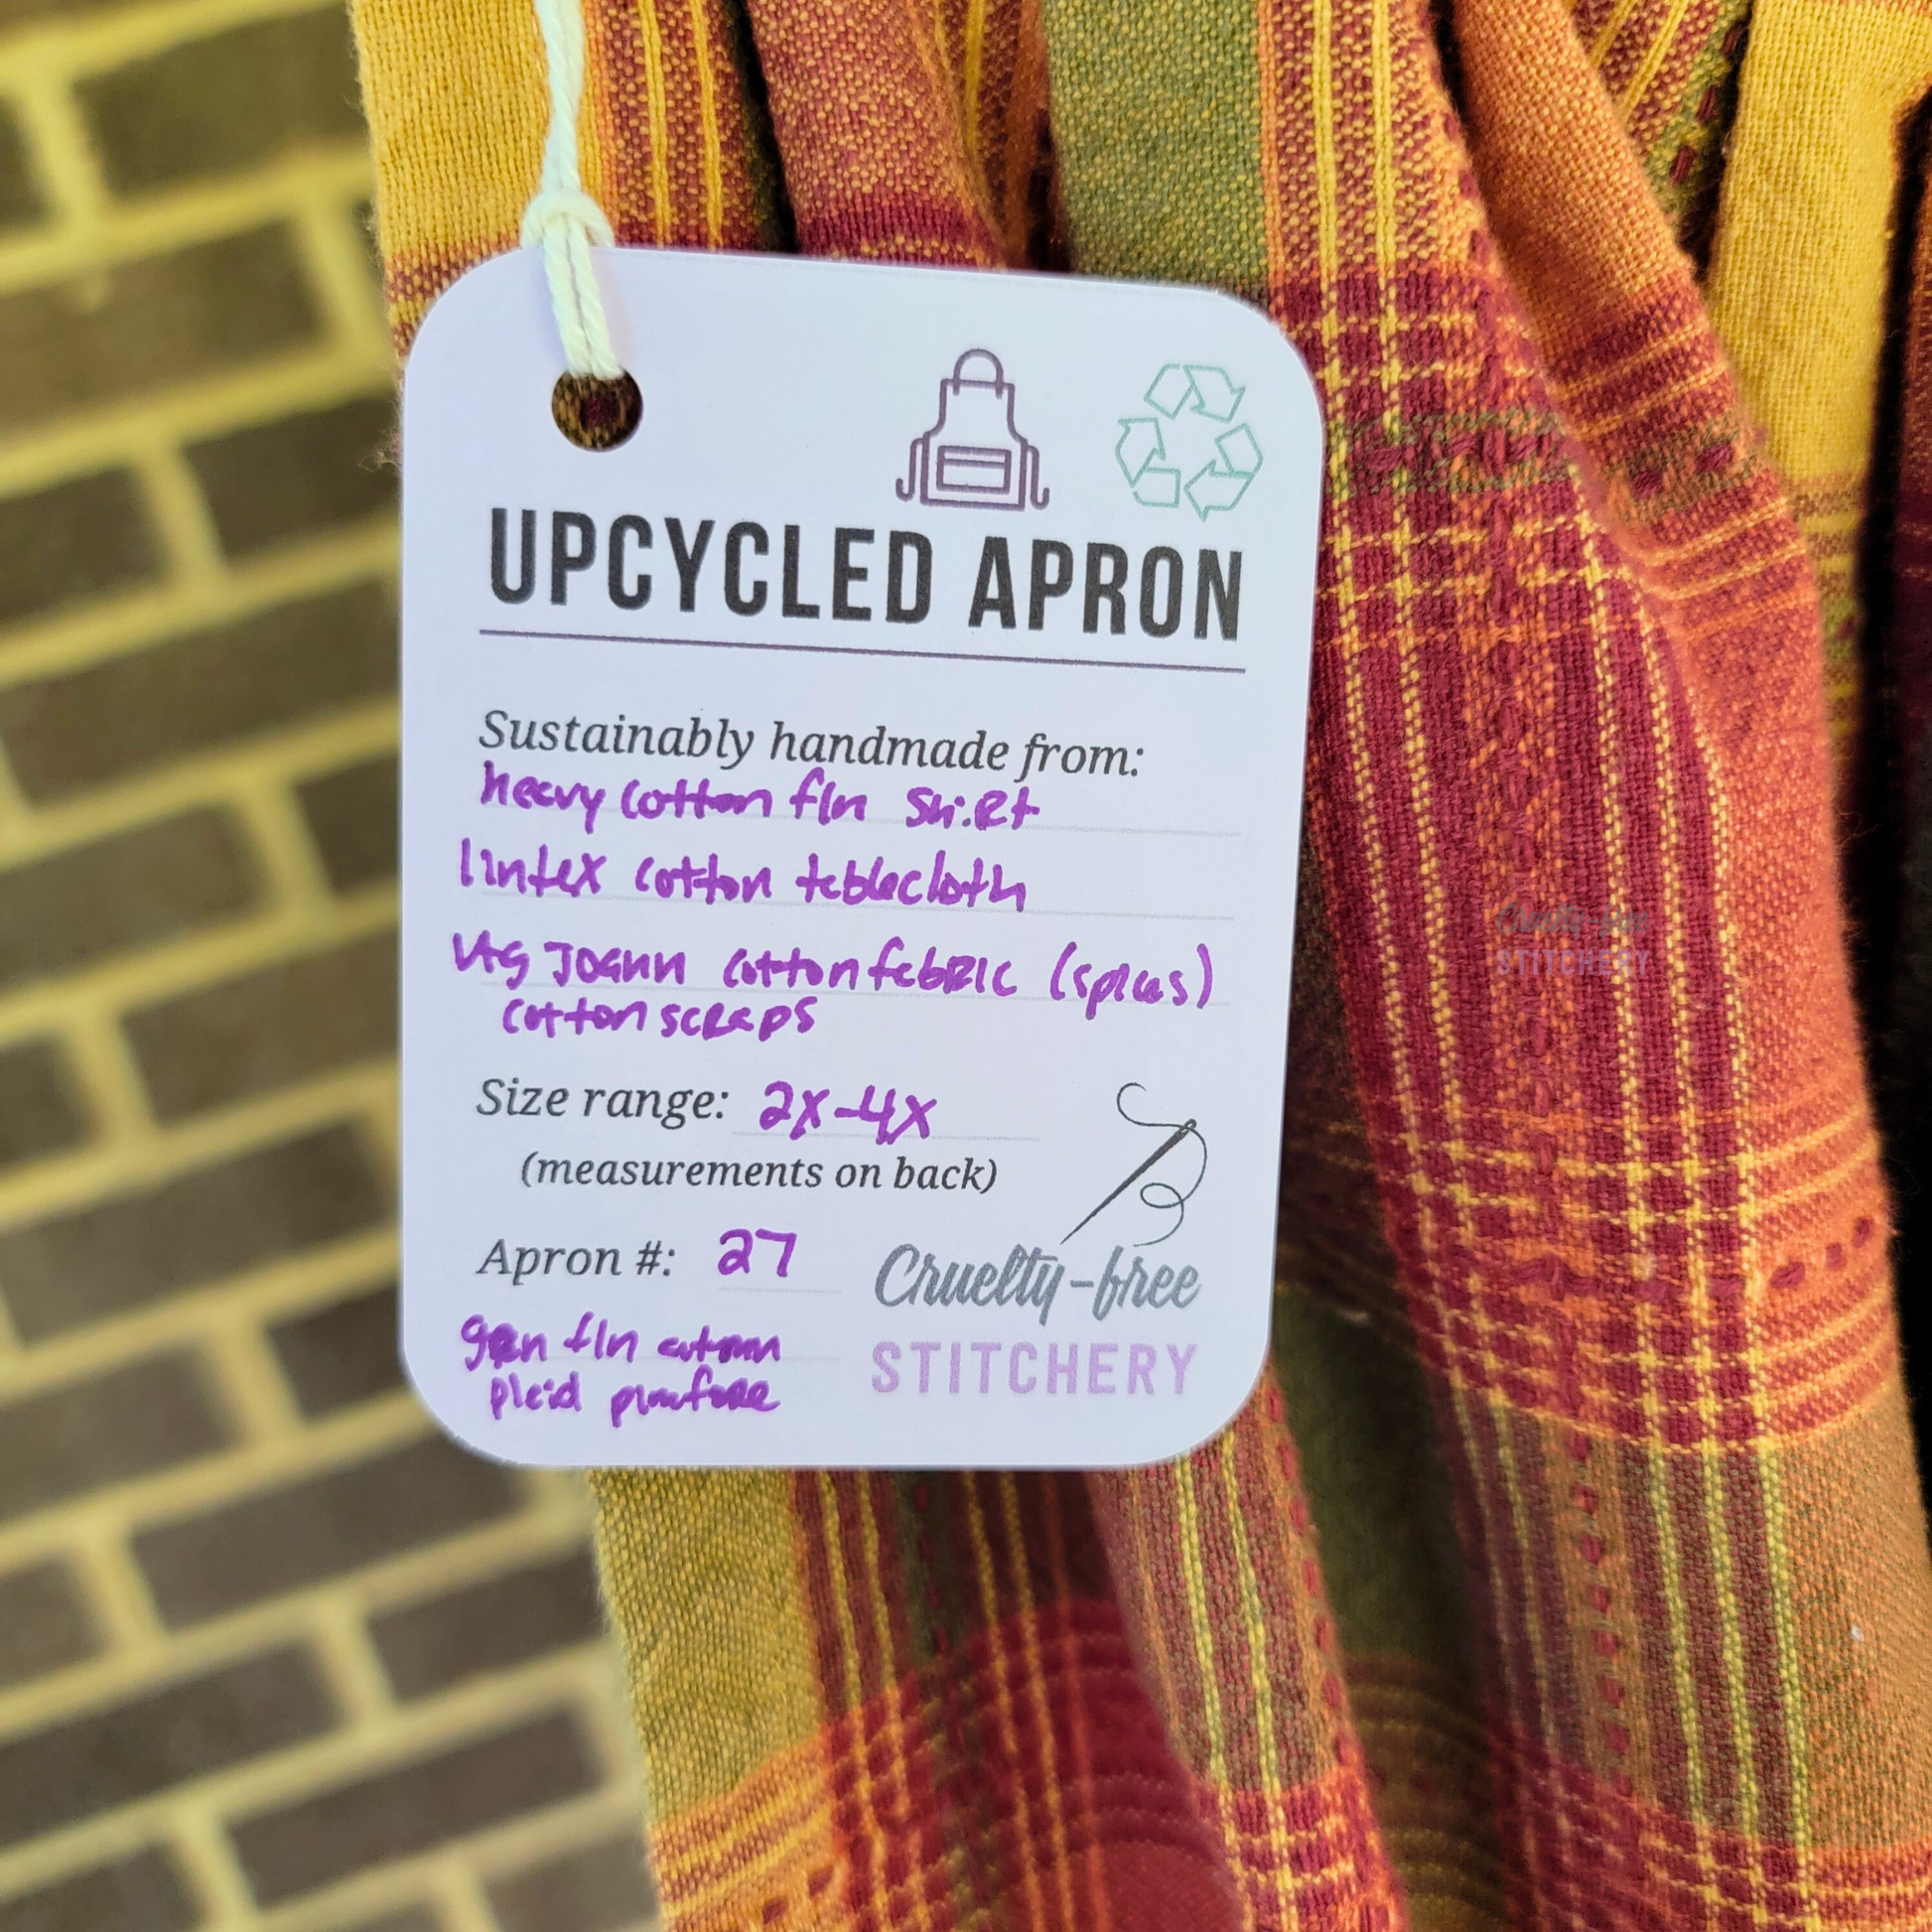 UPCYCLED APRON
Sustainably handmade from:
heavy cotton fln shirt
lintex cotton tablecloth
vtg Joann cotton fabric (spices)
cotton scraps
Size range: 2X-4X
(measurements on back)
Apron #: 27
Cruelty-free
STITCHERY
grn fln autumn
plaid
Cruelty-free
STITCHERY